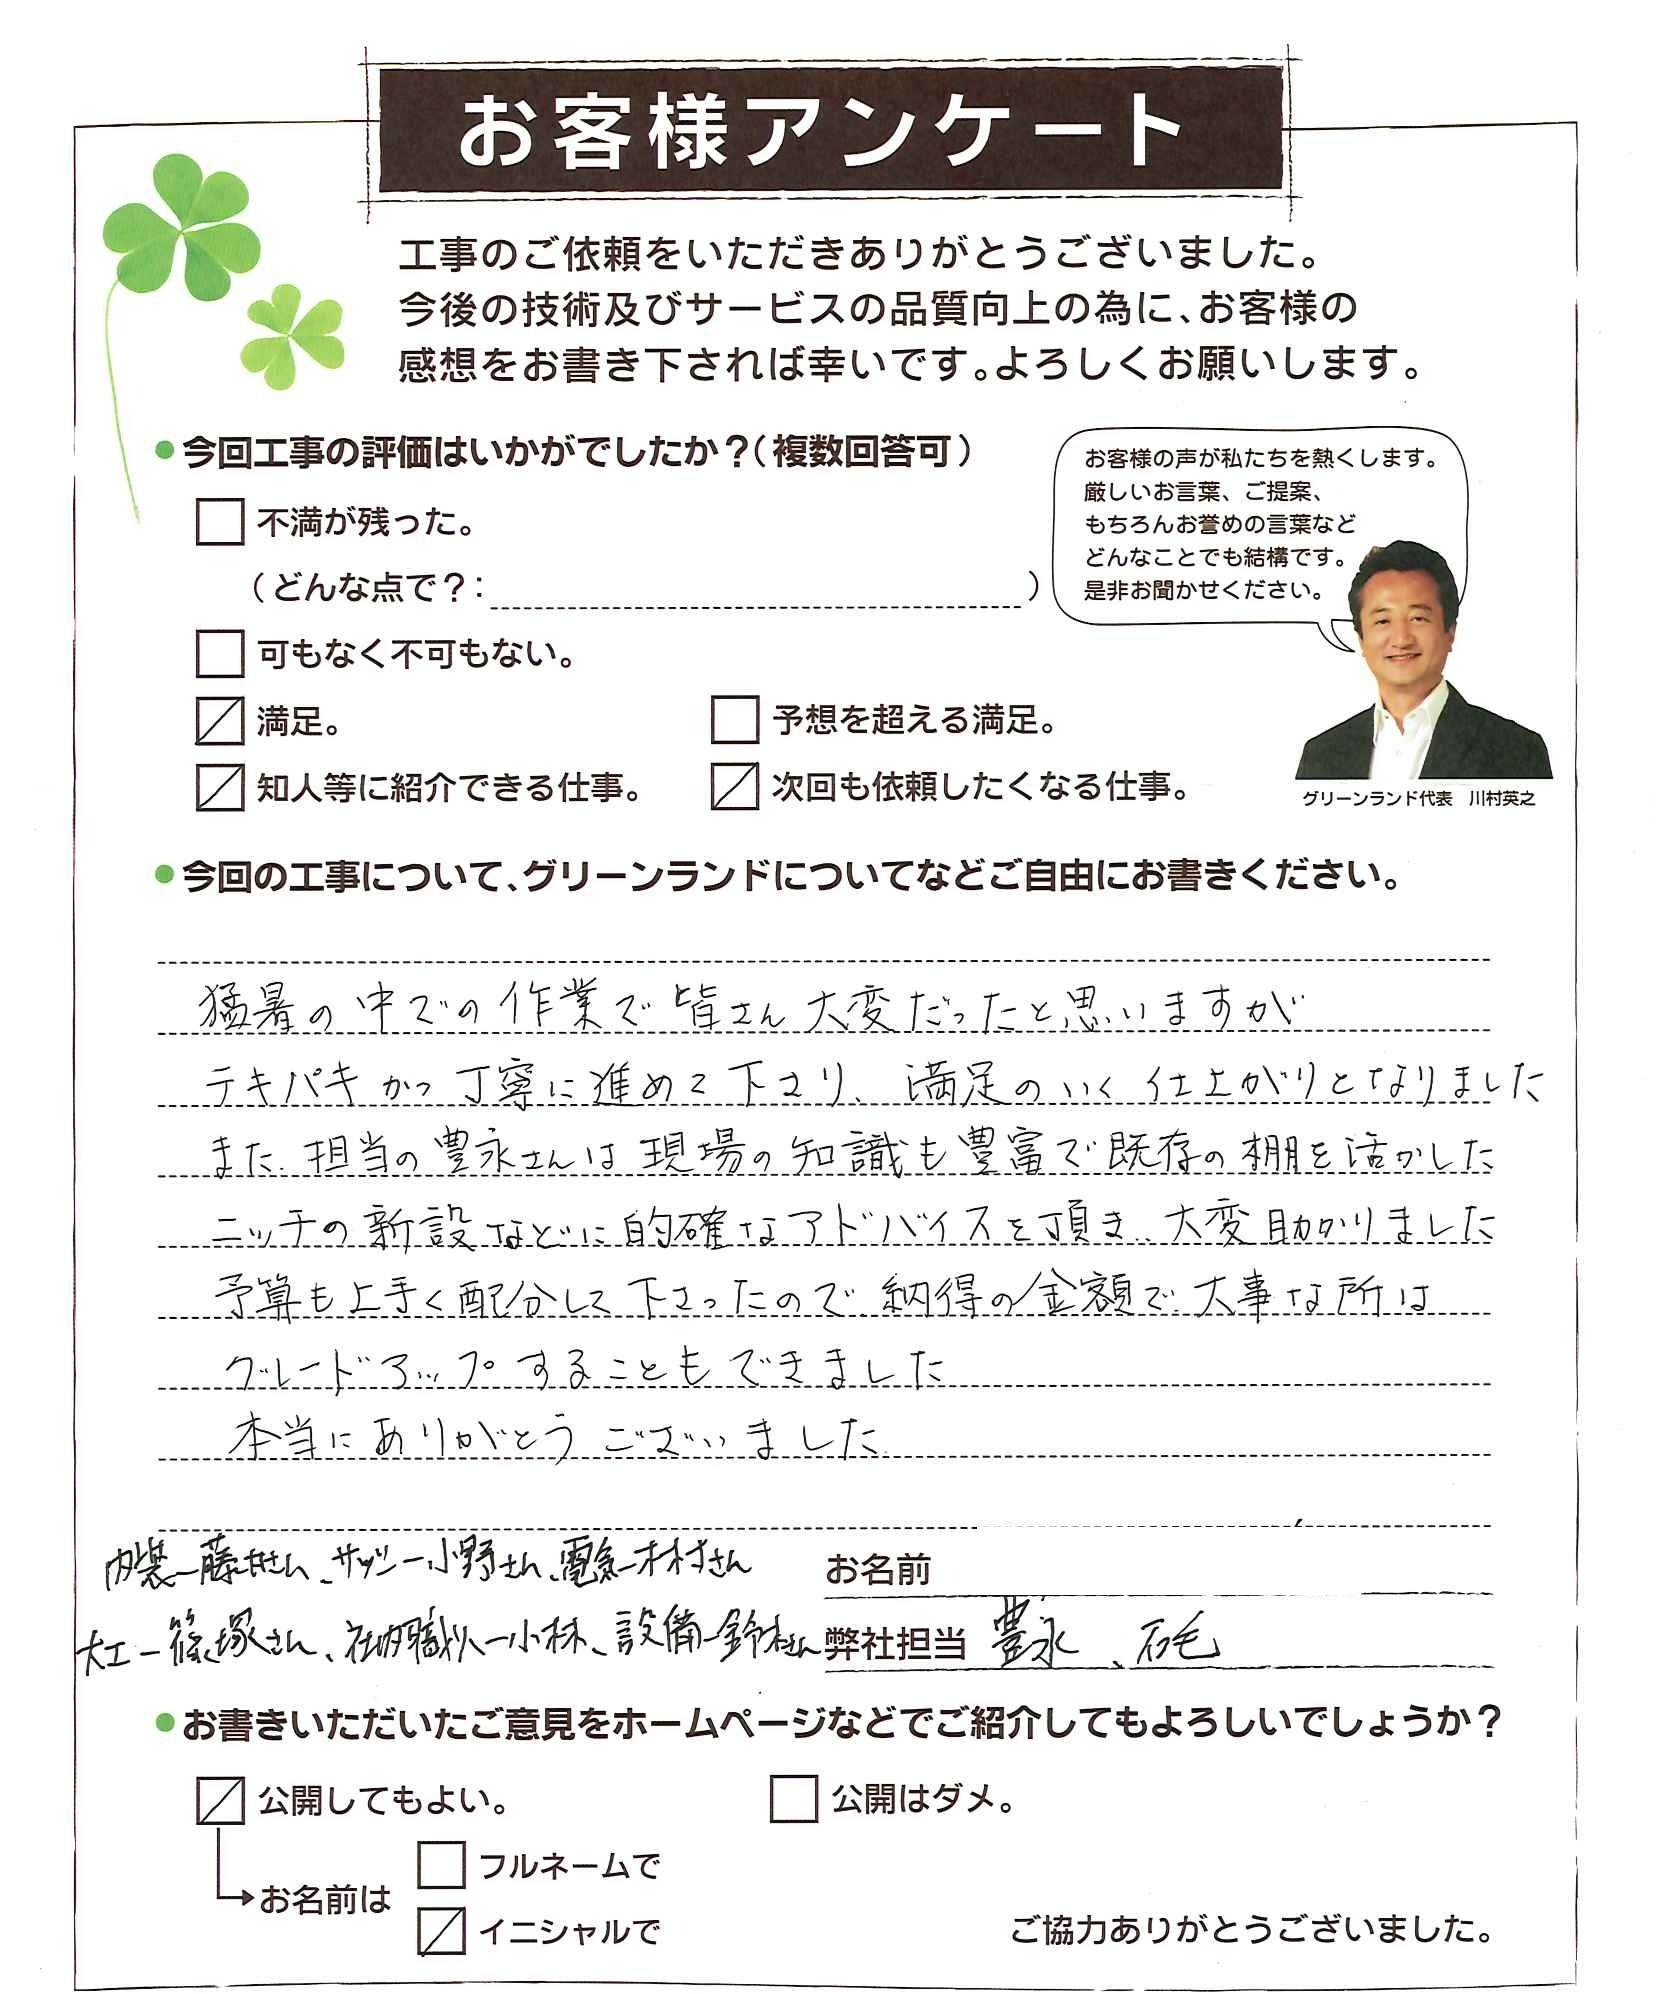 お客様アンケート
工事のご依頼をいただきありがとうございました。
今後の技術及びサービスの品質向上の為に、お客様の
感想をお書き下されば幸いです。よろしくお願いします。
●今回工事の評価はいかがでしたか?(複数回答可)
お客様の声が私たちを熱くします。
厳しいお言葉、ご提案、
もちろんお誉めの言葉など
どんなことでも結構です。
是非お聞かせください。
不満が残った。
(どんな点で?: )
可もなく不可もない。
満足。 予想を超える満足。
知人等に紹介できる仕事。 次回も依頼したくなる仕事。
グリーンランド代表 川村英之
●今回の工事について、グリーンランドについてなどご自由にお書きください。
猛暑の中での作業で皆さん大変だったと思いますが
テキパキかつ丁寧に進めて下さり、満足のいく仕上がりとなりました
また、担当の豊永さんは現場の知識も豊富で既存の棚を活かした
ニッチの新設などに的確なアドバイスを頂き、大変助かりました
予算も上手く配分して下さったので、納得の金額で大事な所は
グレードアップすることもできました
本当にありがとうございました
内装ー藤井さん、サッシー小野さん、電気ー木村さん
お名前
大工ー篠塚さん、社内職人ー小林、設備ー鈴木さん
弊社担当 豊永、石毛
●お書きいただいたご意見をホームページなどでご紹介してもよろしいでしょうか?
公開してもよい。 公開はダメ。
お名前は
フルネームで
イニシャルで
ご協力ありがとうございました。